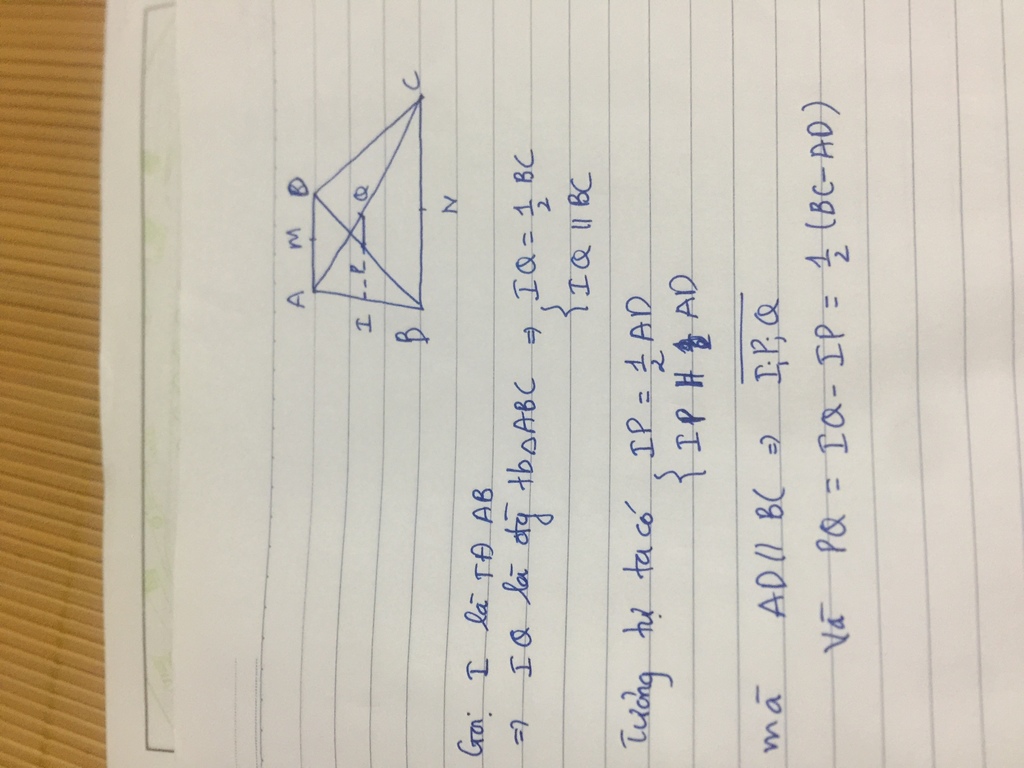 A M D
I P Q
B N C
Gọi I là TĐ AB
=> IQ là đg tb △ABC => { IQ = 1/2 BC
IQ // BC
Tương tự ta có { IP = 1/2 AD
IP // AD
mà AD // BC => I,P,Q
Và PQ = IQ - IP = 1/2 (BC - AD)